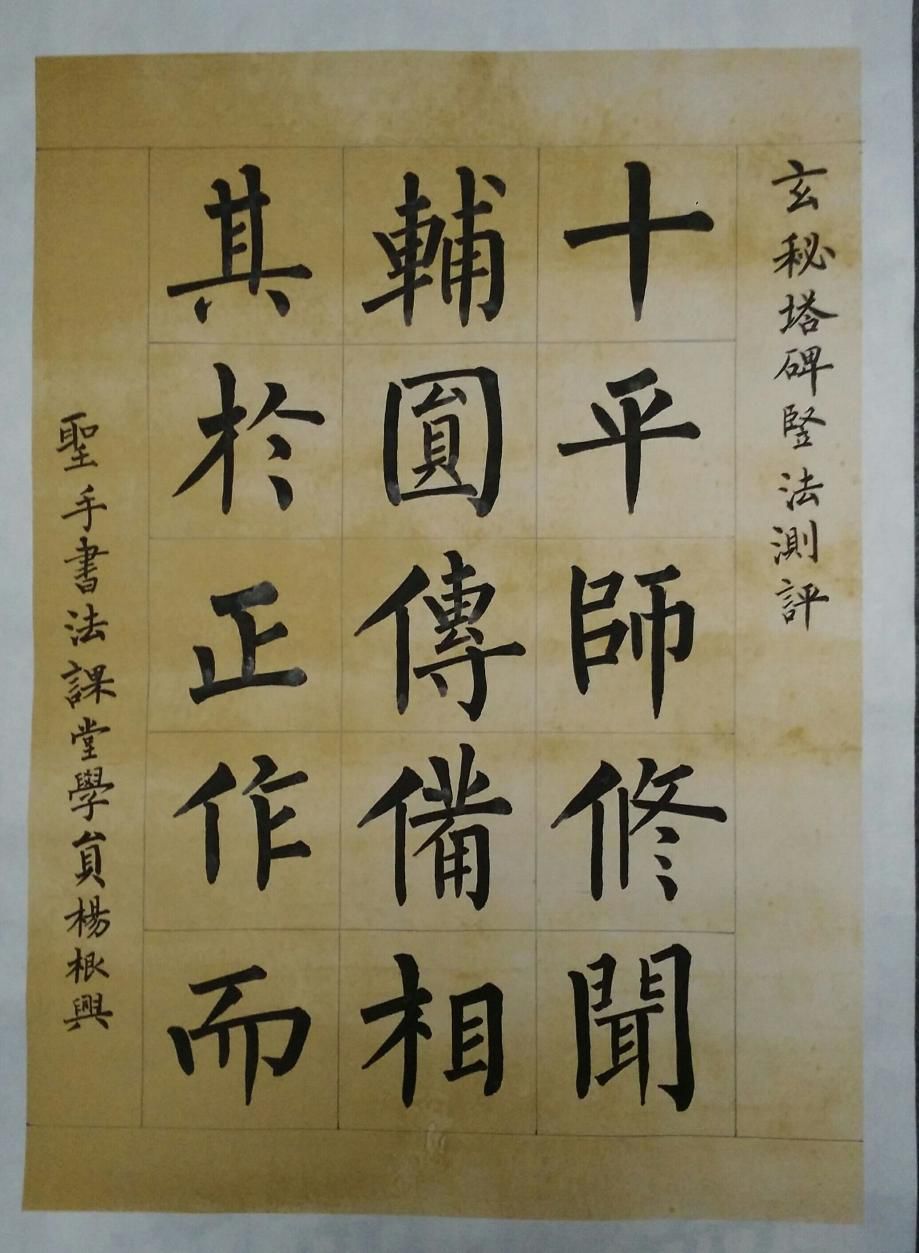 玄秘塔碑竪法測評
十平師修聞
輔圓傳備相
其於正作而
聖手書法課堂學員楊根興